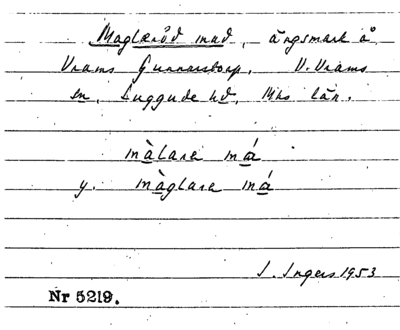 Maglaröd mad, ängsmark å
Vrams Gunnarstorp, V. Vrams
sn, Luggude hd, Mhs län.
màlara má
y. màglara má
I. Ingers 1953
Nr 5219.